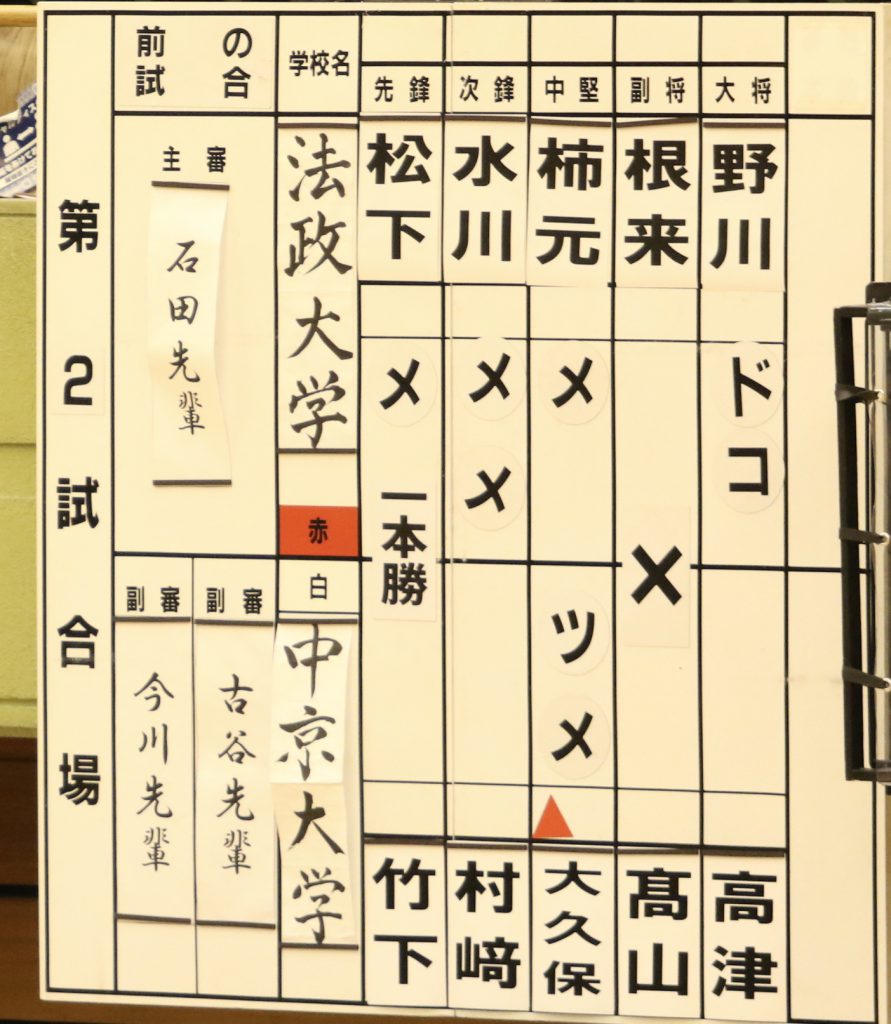 第2試合場
前の試合
主審
石田先輩
副審
今川先輩
副審
古谷先輩
学校名
法政大学
赤
白
中京大学
先鋒
松下
メ
一本勝
竹下
次鋒
水川
メ
メ
村﨑
中堅
柿元
メ
ツ
メ
大久保
副将
根来
×
髙山
大将
野川
ド
コ
高津